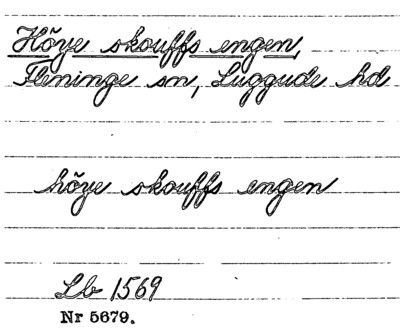 Höye skouffs engen,
Fleninge sn, Luggude hd
höye skouffs engen
Lb 1569
Nr 5679.